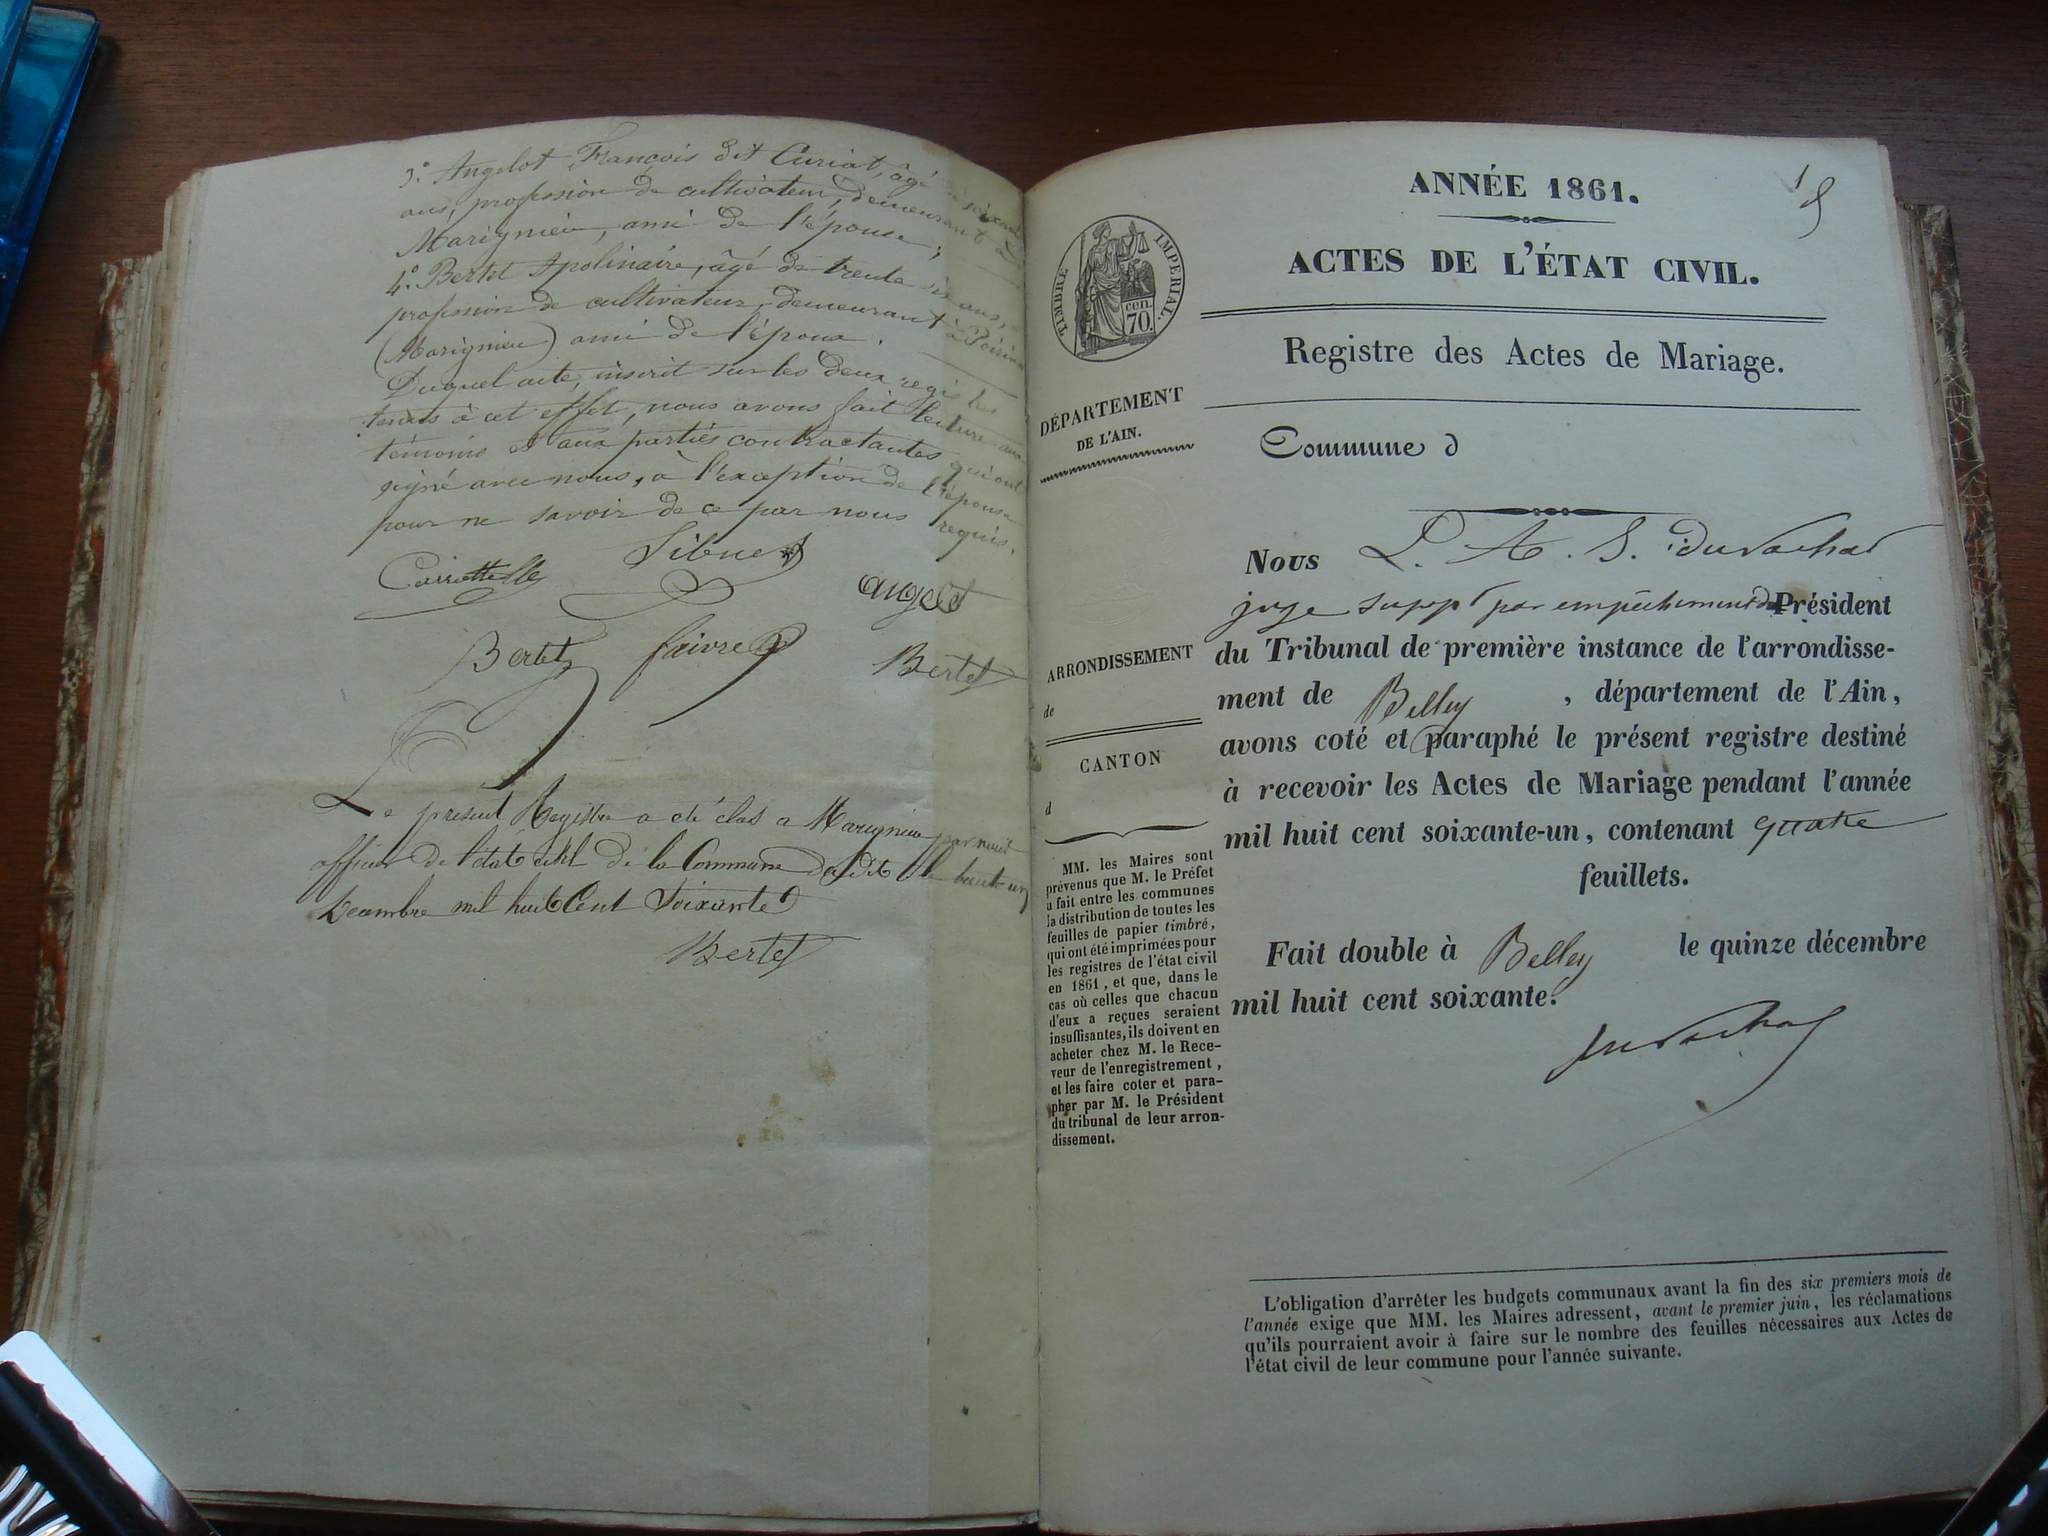 3.° Angelot François dit Curiat, âgé de soixante
ans, profession de cultivateur, demeurant à
Marignieu, ami de l'épouse;
4.° Bertet Apolinaire, âgé de trente six ans,
profession de cultivateur, demeurant à Poirin
(Marignieu) ami de l'époux.
Duquel acte, inscrit sur les deux registres
tenus à cet effet, nous avons fait lecture aux
témoins et aux parties contractantes qui ont
signé avec nous, à l'exception de l'épouse
pour ne savoir de ce par nous requis.
Sibuet
angelot
Bertet faivre Bertet
Le present Registre a été clos a Marignieu par nous
officier de l'état civil de la Commune dudit le trente un
Decembre mil huit Cent Soixante
Bertet
1
ANNÉE 1861.
ACTES DE L'ÉTAT CIVIL.
TIMBRE IMPERIAL.
cen.
70.
Registre des Actes de Mariage.
DÉPARTEMENT
DE L'AIN.
Commune d
Nous L. A. S. Duvachat
juge suppt par empêchement du Président
du Tribunal de première instance de l'arrondisse-
ment de Belley, département de l'Ain,
avons coté et paraphé le présent registre destiné
à recevoir les Actes de Mariage pendant l'année
mil huit cent soixante-un, contenant quatre
feuillets.
Fait double à Belley le quinze décembre
mil huit cent soixante.
Duvachat
ARRONDISSEMENT
de
CANTON
d
MM. les Maires sont
prévenus que M. le Préfet
a fait entre les communes
la distribution de toutes les
feuilles de papier timbré,
qui ont été imprimées pour
les registres de l'état civil
en 1861, et que, dans le
cas où celles que chacun
d'eux a reçues seraient
insuffisantes, ils doivent en
acheter chez M. le Rece-
veur de l'enregistrement,
et les faire coter et para-
pher par M. le Président
du tribunal de leur arron-
dissement.
L'obligation d'arrêter les budgets communaux avant la fin des six premiers mois de
l'année exige que MM. les Maires adressent, avant le premier juin, les réclamations
qu'ils pourraient avoir à faire sur le nombre des feuilles nécessaires aux Actes de
l'état civil de leur commune pour l'année suivante.